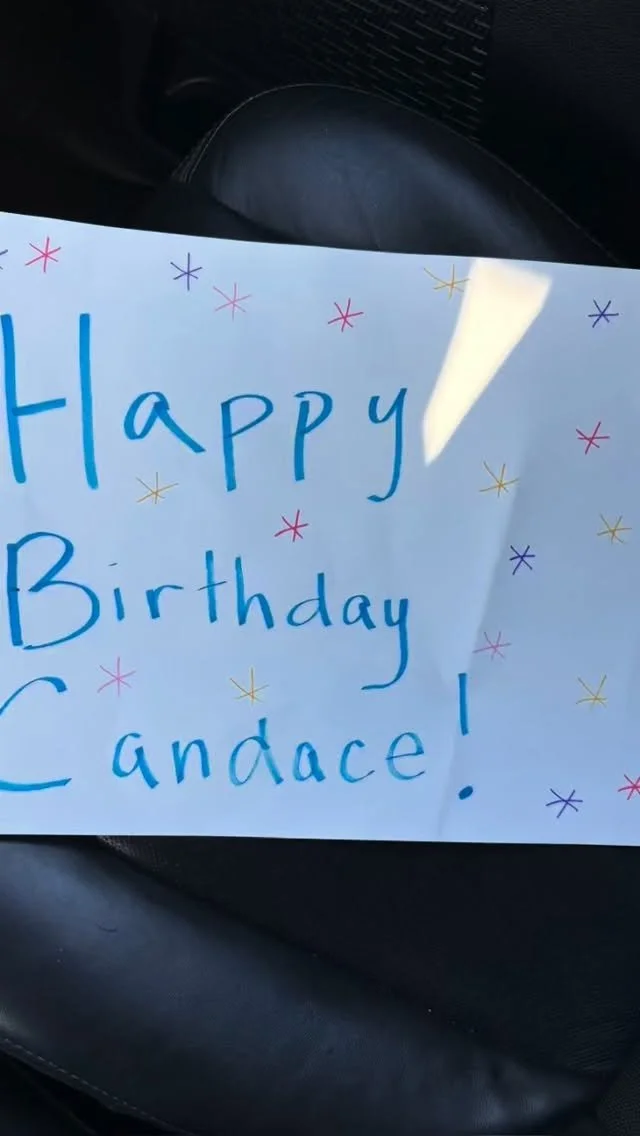 Happy
Birthday
Candace!